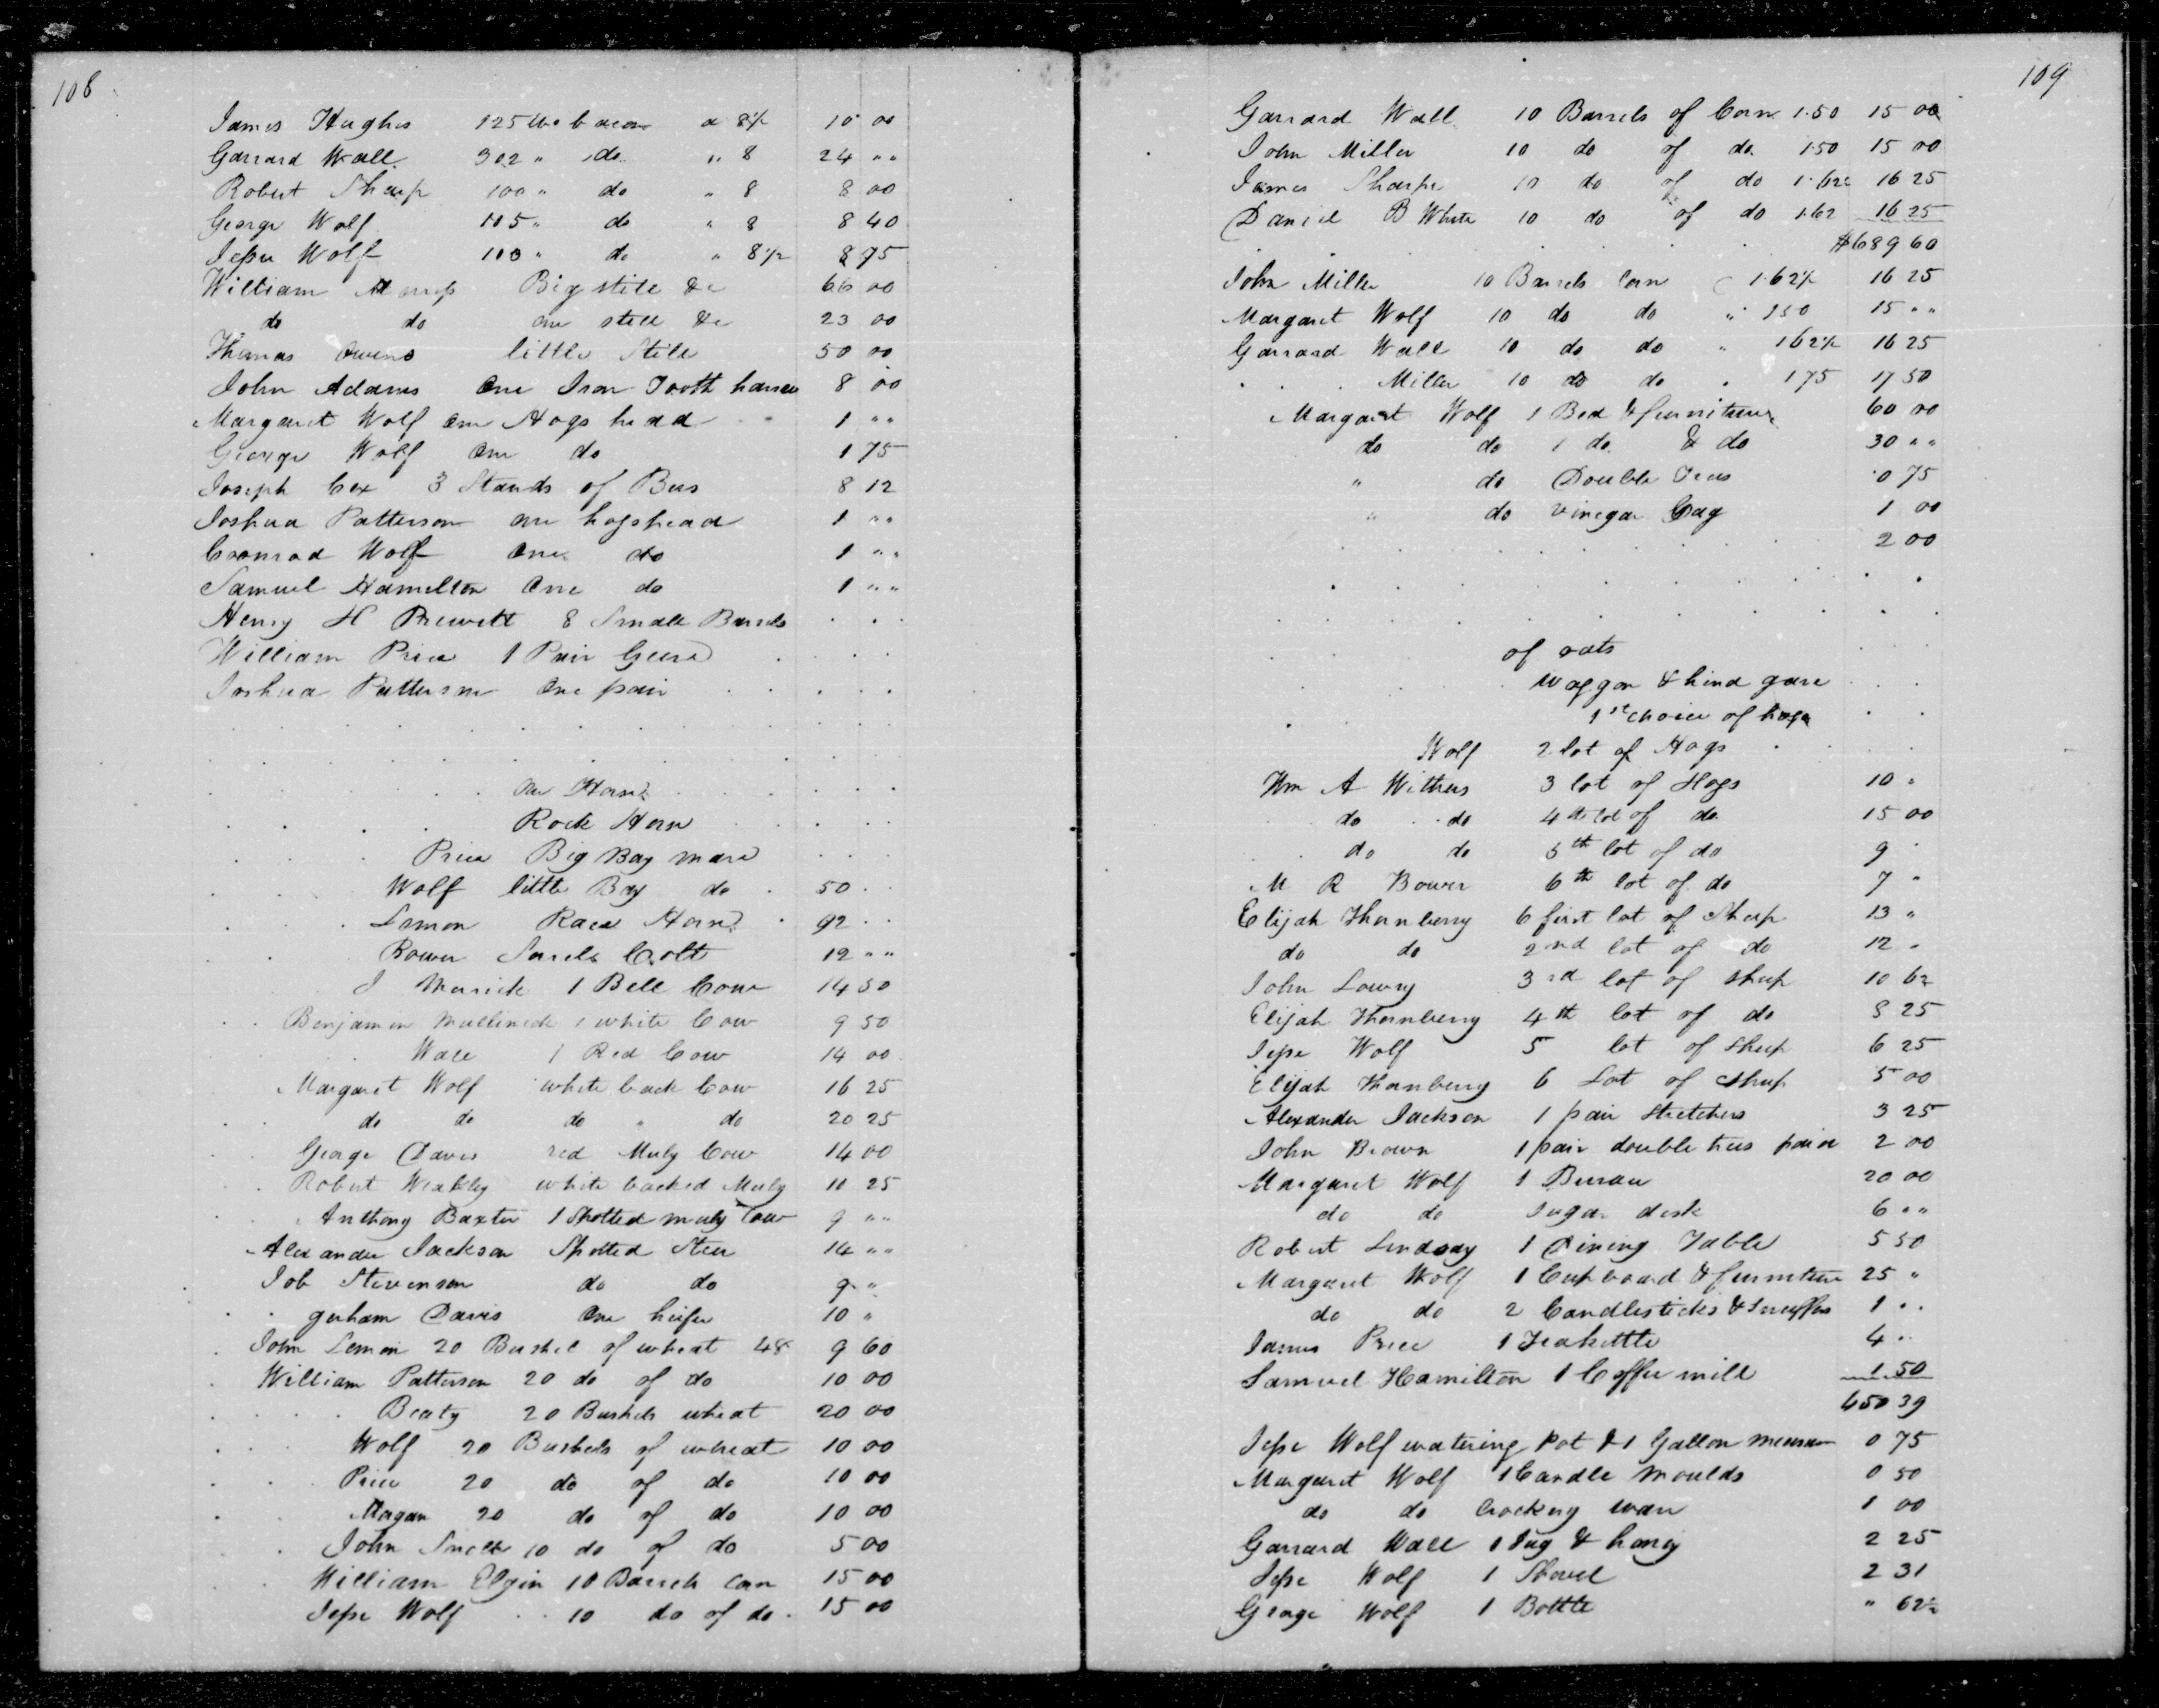 108
James Hughes 125 lbs bacon a 8½ 10 00
Garrard Wall 302 " do " 8 24 " "
Robert Sharp 100 " do " 8 8 00
George Wolf 105 " do " 8 8 40
Jesse Wolf 100 " do " 8½ 8 75
William Big still &c 66 00
do do one still &c 23 00
Thomas Owens little Still 50 00
John Adams One Iron Tooth harrow 8 00
Margaret Wolf one Hogs head 1 " "
George Wolf One do 1 75
Joseph Cox 3 Stands of Bees 8 12
Joshua Patterson one hogshead 1 " "
Coonrod Wolf One do 1 " "
Samuel Hamelton One do 1 " "
Henry H Prewett 8 Small Barrels
William Price 1 Pair Geers
Joshua Patterson One pair
One Horse
Rock Horse
Price Big Bay mare
Wolf little Bay do 50
Lemon Race Horse 92
Bower Sorrels Colt 12 " "
J Merrick 1 Bell Cow 14 50
Benjamin Mullinick 1 white Cow 9 50
Wall 1 Red Cow 14 00
Margaret Wolf white back Cow 16 25
do do do " do 20 25
George Davis red Muly Cow 14 00
Robert Weakley white backed Muly 10 25
Anthony Baxter 1 Spotted muly Cow 9 " "
Alexander Jackson Spotted Steer 14 " "
Job Stevenson do do 9 "
gerham Davis One heifer 10 "
John Lemon 20 Bushel of wheat 48 9 60
William Patterson 20 do of do 10 00
Beaty 20 Bushels wheat 20 00
Wolf 20 Bushels of wheat 10 00
Price 20 do of do 10 00
Morgan 20 do of do 10 00
John Smelt 10 do of do 5 00
William Elgin 10 Barrels Corn 15 00
Jesse Wolf 10 do of do 15 00
109
Garrard Wall 10 Barrels of Corn 1.50 15 00
John Miller 10 do of do 1.50 15 00
James Sharpe 10 do of do 1.62 16 25
Daniel B White 10 do of do 1.62 16 25
$689 60
John Miller 10 Barrels Corn 1.62½ 16 25
Margaret Wolf 10 do do " 150 15 " "
Garrard Wall 10 do do " 162½ 16 25
Miller 10 do do " 175 17 50
Margaret Wolf 1 Bed & furniture 60 00
do do 1 do & do 30 " "
" do Double Trees 0 75
" do vinegar Cag 1 00
2 00
of oats
Waggon & hind gare
1st choice of hogs
Wolf 2 lot of Hogs
Wm A Withers 3 lot of Hogs 10 "
do do 4th lot of do 15 00
do do 5th lot of do 9
M R Bower 6th lot of do 7 "
Elijah Thornberry 6 first lot of Sheep 13 "
do do 2nd lot of do 12 "
John Lowry 3rd lot of sheep 10 62
Elijah Thornberry 4th lot of do 8 25
Jesse Wolf 5 lot of Sheep 6 25
Elijah Thornberry 6 Lot of sheep 5 00
Alexander Jackson 1 pair stretchers 3 25
John Brown 1 pair double trees pair 2 00
Margaret Wolf 1 Bureau 20 00
do do Sugar desk 6 " "
Robert Lindsay 1 Dining Table 5 50
Margaret Wolf 1 Cupboard & furniture 25 "
do do 2 Candlesticks & Snuffers 1 " "
James Price 1 Teakettle 4 "
Samuel Hamilton 1 Coffee mill 1 50
450 39
Jesse Wolf watering pot & 1 Gallon measure 0 75
Margaret Wolf 1 Candle moulds 0 50
do do Crockery ware 1 00
Garrard Wall 1 Jug & honey 2 25
Jesse Wolf 1 Shovel 2 31
George Wolf 1 Bottle " 62½